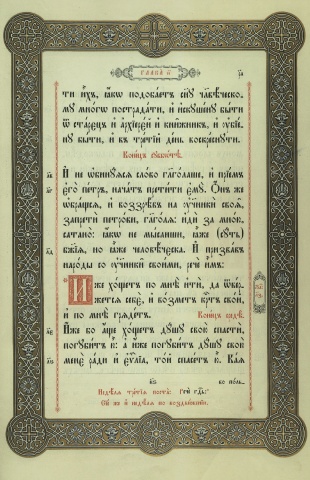 ГЛАВА И҃
ти и҆̀хъ, ꙗ҆́кѡ подоба́етъ сн҃у чл҃вѣ́ческо-
му мно́гѡ пострада́ти, и҆ и҆скꙋше́нꙋ бы́ти
ѿ ста́рєцъ и҆ а҆рхїерє́й и҆ кни̑жникъ, и҆ ᲂу҆бїе́-
нꙋ бы́ти, и҆ въ тре́тїй де́нь воскре́снꙋти.
Коне́цъ сꙋббѡ́тѣ.
И҆ не ѡ҆бинꙋ́ѧсѧ сло́во гл҃го́лаше. и҆ прїе́мъ
є҆го̀ пе́тръ, нача́тъ прети́ти є҆мꙋ̀. Ѻ҆́нъ же
ѡ҆бра́щьсѧ, и҆ воззрѣ́въ на ᲂу҆чн҃ки̑ своѧ̑,
запретѝ петро́ви, глаго́лѧ: и҆дѝ за мно́ю,
сатано̀: ꙗ҆́кѡ не мы́слиши, ꙗ҆̀же (сꙋ́ть)
бж҃їѧ, но ꙗ҆̀же человѣ́чєска. И҆ призва́въ
наро́ды со ᲂу҆чн҃ки̑ свои́ми, речѐ и҆̀мъ:
И҆́же хо́щетъ по мнѣ̀ и҆тѝ, да ѿве́р-
жетсѧ себє̀, и҆ во́зметъ крⷭ҇тъ сво́й,
и҆ по мнѣ̀ грѧде́тъ. Коне́цъ недѣ́
И҆́же бо а҆́ще хо́щетъ дꙋ́шꙋ свою̀ спастѝ,
погꙋби́тъ ю҆̀: а҆ и҆́же погꙋби́тъ дꙋ́шꙋ свою̀
менє̀ ра́ди и҆ є҆ѵⷢ҇лїа, то́й спасе́тъ ю҆̀. Ка́ѧ
бо по́ль-
Недѣ́лѧ тре́тїѧ поста̀: